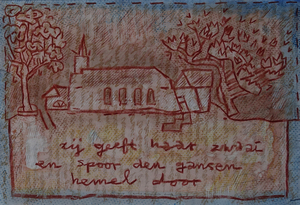 zij geeft haar zwaai
en spoor den gansen
hemel door